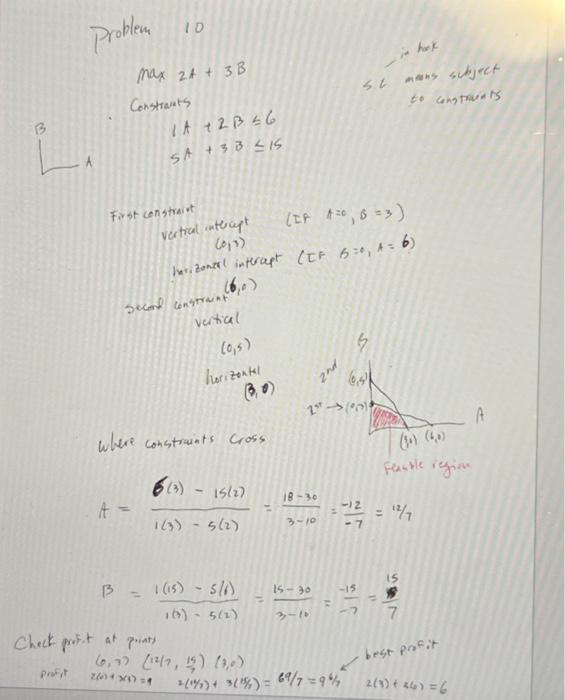 Problem 10
in book
max 2A + 3B
s.t. means subject
to constraints
Constraints
1A + 2B ≤ 6
5A + 3B ≤ 15
B
A
First constraint
vertical intercept (IF A=0, B=3)
(0,3)
horizontal intercept (IF B=0, A=6)
(6,0)
Second constraint
vertical
(0,5)
horizontal
(3,0)
B
2nd (0,5)
1st → (0,3)
A
(3,0) (6,0)
Feasible region
Where constraints cross
A = 6(3) - 15(2) / 1(3) - 5(2) = 18-30 / 3-10 = -12 / -7 = 12/7
B = 1(15) - 5(6) / 1(3) - 5(2) = 15-30 / 3-10 = -15 / -7 = 15 / 7
Check profit at points
best profit
(0,3) (12/7, 15/7) (3,0)
profit 2(0)+3(3)=9 2(12/7) + 3(15/7) = 69/7 = 9 6/7 2(3) + 3(0) = 6